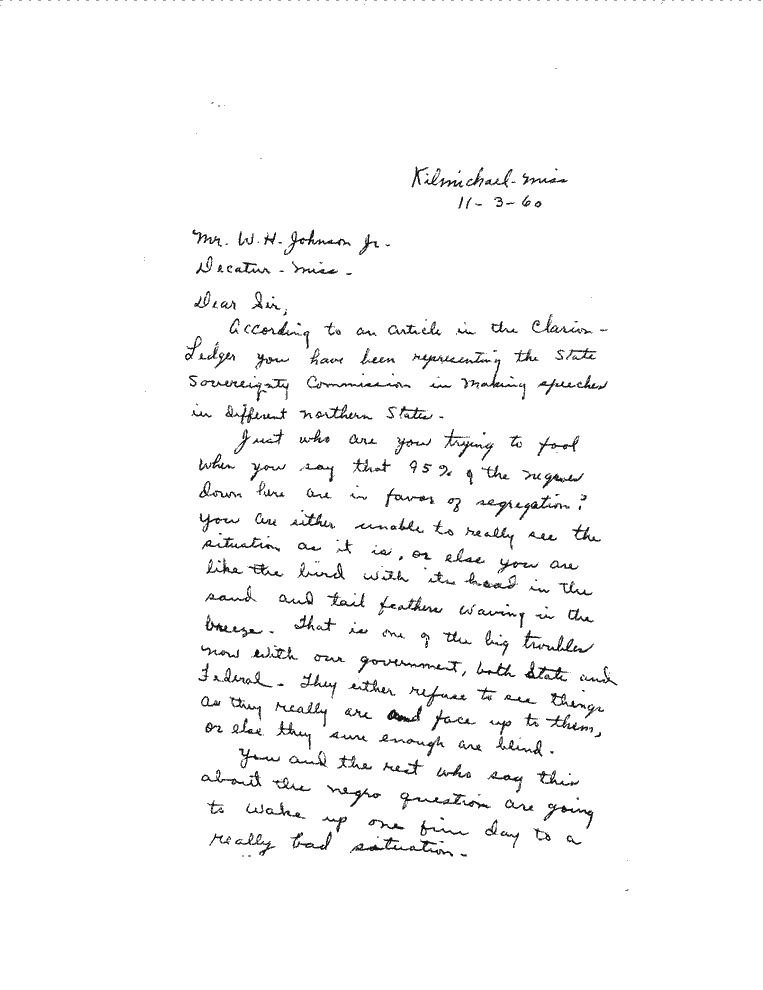 Kilmichael - Miss
11 - 3 - 60
Mr. W. H. Johnson Jr.
Decatur - Miss -
Dear Sir,
According to an article in the Clarion -
Ledger you have been representing the State
Sovereignty Commission in making speeches
in different northern States -
Just who are you trying to fool
when you say that 95% of the negroes
down here are in favor of segregation?
You are either unable to really see the
situation as it is, or else you are
like the bird with its head in the
sand and tail feathers waving in the
breeze. That is one of the big troubles
now with our government, both State and
Federal - They either refuse to see things
as they really are and face up to them,
or else they sure enough are blind.
You and the rest who say this
about the negro question are going
to wake up one fine day to a
really bad situation -